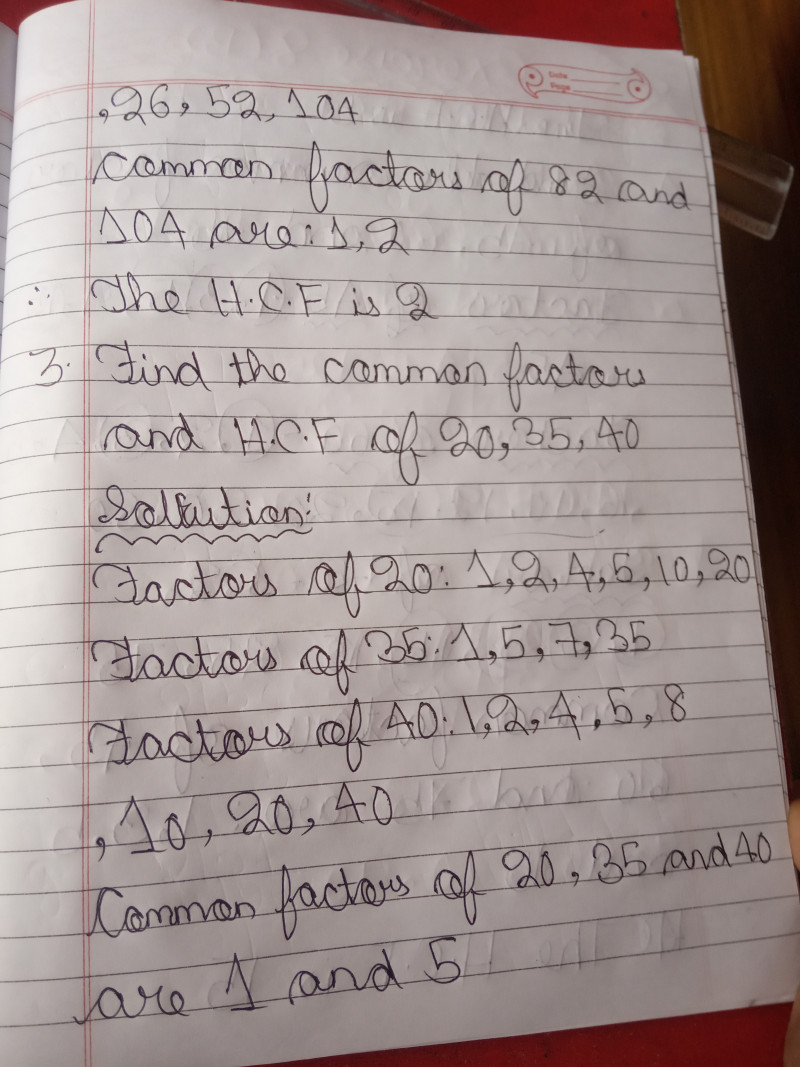 Date
Page
,26, 52, 104
Common factors of 82 and
104 are: 1, 2
∴ The H.C.F is 2
3. Find the common factors
and H.C.F of 20, 35, 40
Solution:
Factors of 20: 1, 2, 4, 5, 10, 20
Factors of 35: 1, 5, 7, 35
Factors of 40: 1, 2, 4, 5, 8
, 10, 20, 40
Common factors of 20, 35 and 40
are 1 and 5